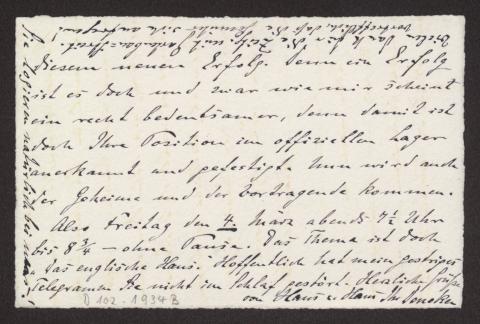 diesem neuen Erfolg. Denn ein Erfolg
ist es doch und zwar wie mir scheint
ein recht bedeutsamer, denn damit ist
doch Ihre Position im offiziellen Lager
anerkannt und gefestigt. Nun wird auch
der Geheime und der Vortragende kommen.
Also Freitag den 4. März abends 7 1/2 Uhr
bis 8 3/4 – ohne Pause. Das Thema ist doch
„Das englische Haus." Hoffentlich hat mein gestriges
Telegramm Sie nicht im Schlaf gestört. Herzliche Grüße
von Haus u. Haus Ihr Deneken
D 102.1934 B
Sie logieren natürlich bei uns!
Vielen Dank für die